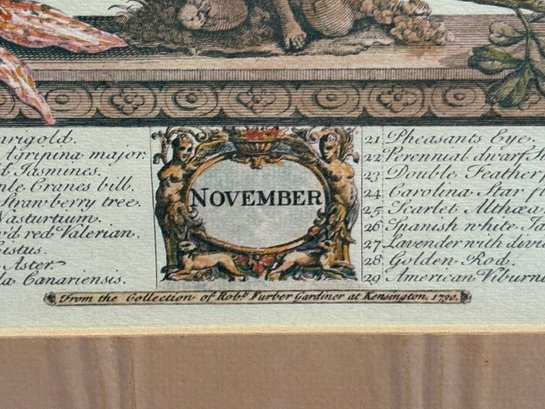 arigold.
Agripina major
d Jasmines.
nle Cranes bill.
Strawberry tree.
Nasturtium.
d red Valerian.
istus.
Aster.
la Canariensis.
NOVEMBER
21 Pheasants Eye.
22 Perennial dwarf
23 Double Featherf
24 Carolina Star fl
25 Scarlet Althæa
26 Spanish white Ja
27 Lavender with divid
28 Golden Rod.
29 American Viburn
From the Collection of Robt. Furber Gardiner at Kensington. 1730.